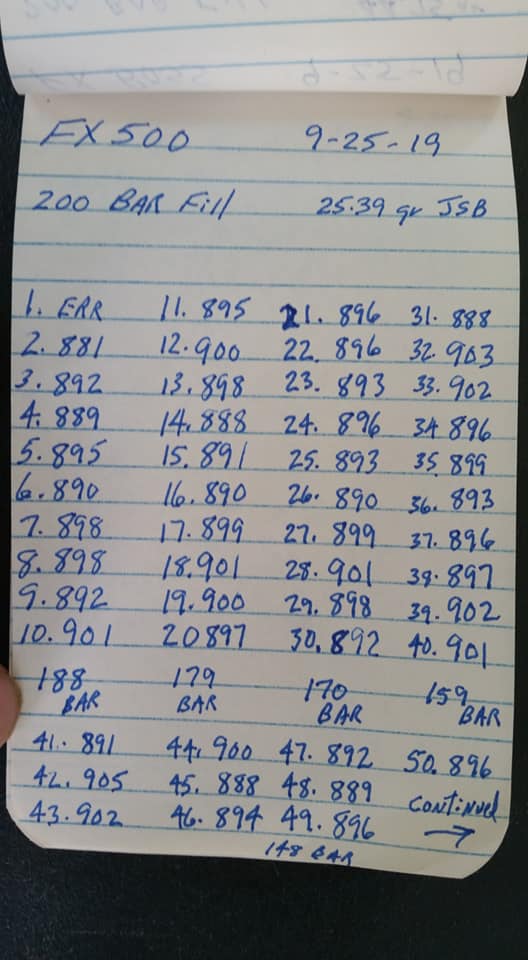 FX 500 9-25-19
200 BAR Fill 25.39 gr JSB
1. ERR 11. 895 21. 896 31. 888
2. 881 12. 900 22. 896 32. 903
3. 892 13. 898 23. 893 33. 902
4. 889 14. 888 24. 896 34 896
5. 895 15. 891 25. 893 35 899
6. 890 16. 890 26. 890 36. 893
7. 898 17. 899 27. 899 37. 896
8. 898 18. 901 28. 901 38. 897
9. 892 19. 900 29. 898 39. 902
10. 901 20 897 30. 892 40. 901
188 179 170 159
BAR BAR BAR BAR
41. 891 44. 900 47. 892 50. 896
42. 905 45. 888 48. 889 continued
43. 902 46. 894 49. 896 →
148 BAR